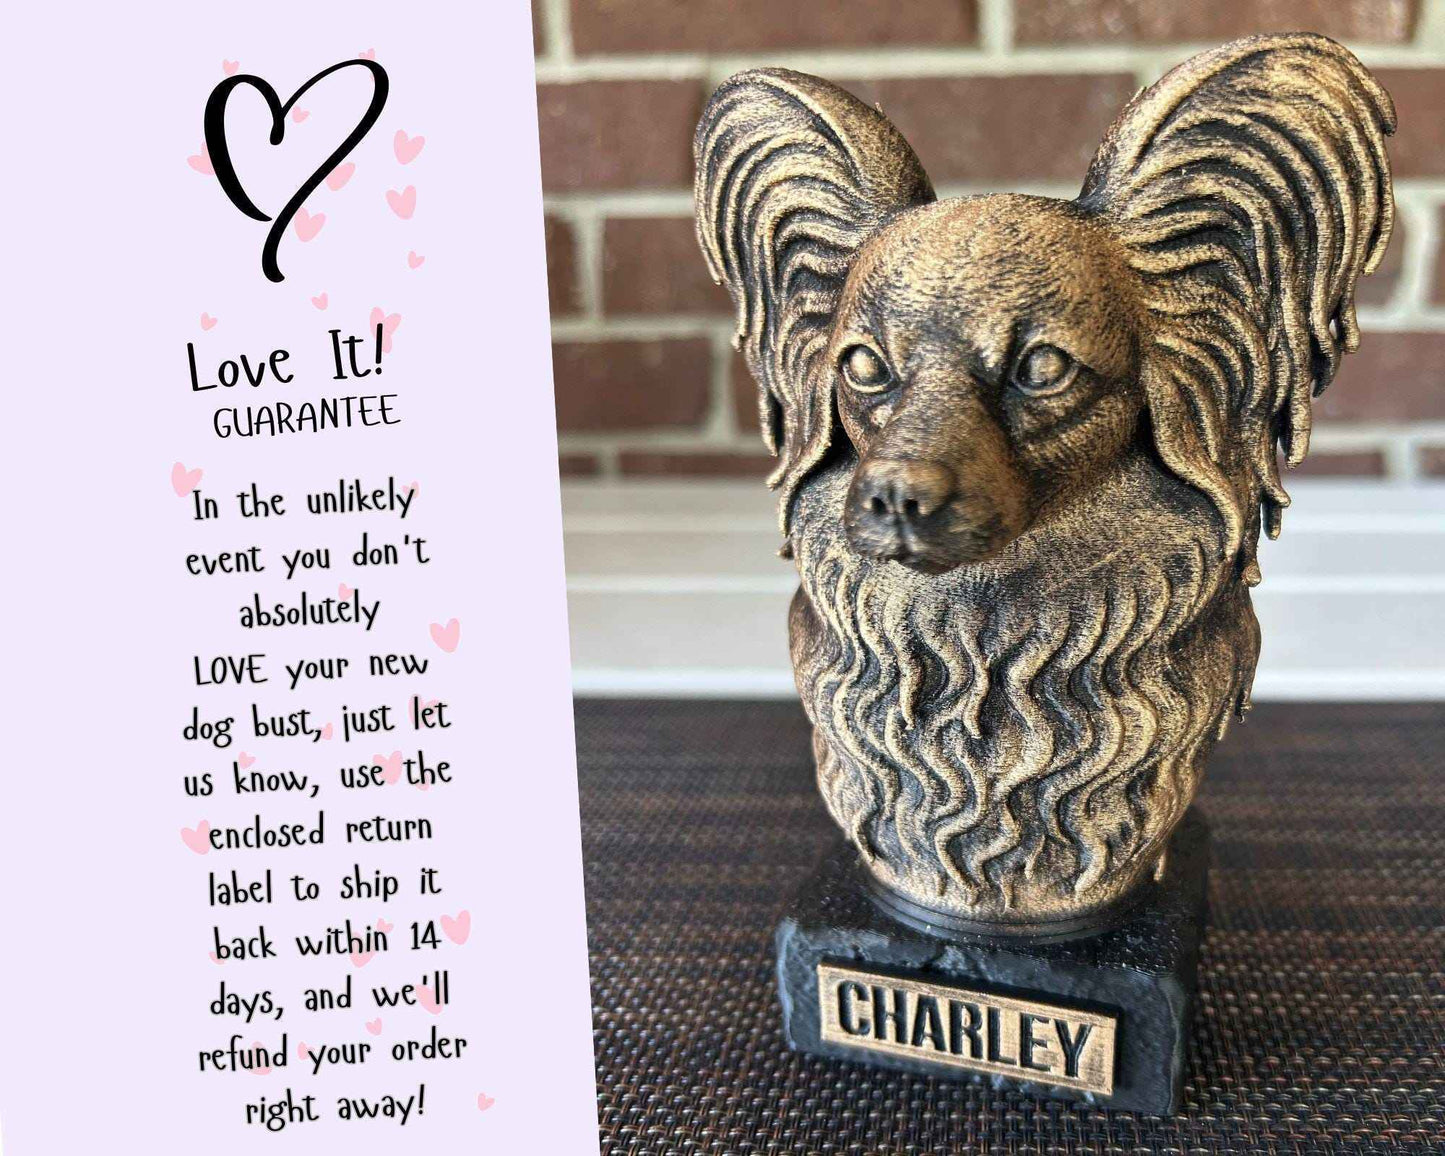 Love It!
GUARANTEE
In the unlikely
event you don't
absolutely
LOVE your new
dog bust, just let
us know, use the
enclosed return
label to ship it
back within 14
days, and we'll
refund your order
right away!
CHARLEY